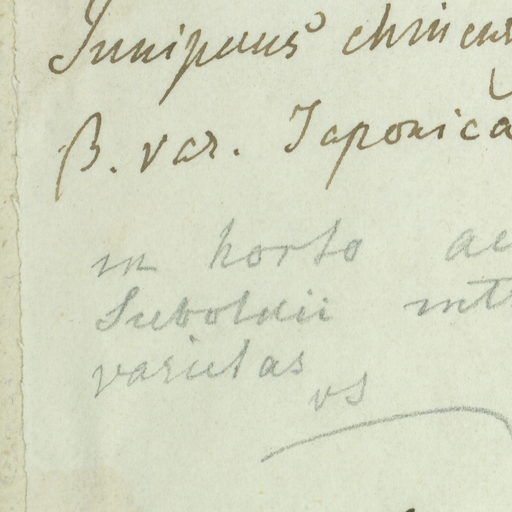 Juniperus chinens
β. var. Japonica
in horto
Sieboldii int
varietas
vs